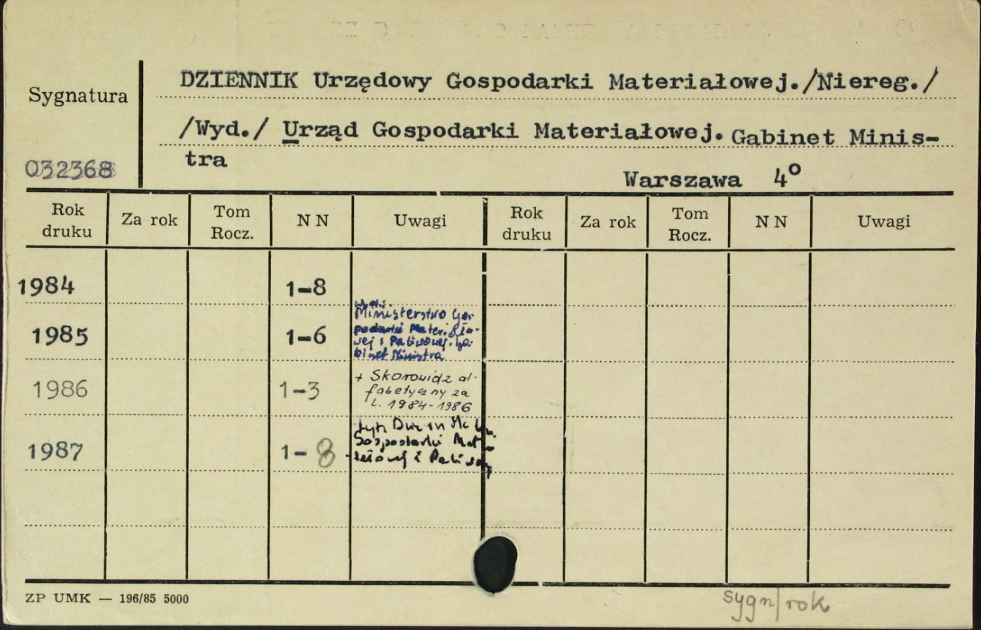 DZIENNIK Urzędowy Gospodarki Materiałowej./Niereg./
Sygnatura
/Wyd./ Urząd Gospodarki Materiałowej. Gabinet Minis-
tra
032368
Warszawa 4°
Rok druku Za rok Tom Rocz. NN Uwagi Rok druku Za rok Tom Rocz. NN Uwagi
1984 1-8
1985 1-6
Ministerstwo Gos-
podarki Materiało-
wej i Paliwowej. Ga-
binet Ministra
1986 1-3
+ Skorowidz al-
fabetyczny za
l. 1984-1986
1987 1-8
Gospodarki Mat
i Paliwowej
ZP UMK — 196/85 5000
sygn/rok